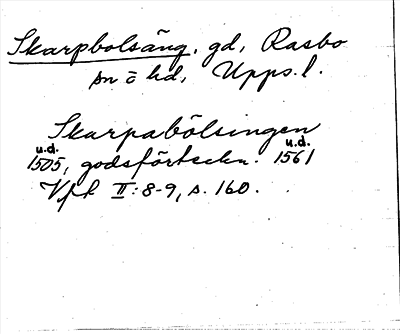 Skarpbolsäng. gd, Rasbo
sn o hd, Upps. l.
Skarpabölsingen
u.d. u.d.
1505, godsförteckn. 1561
Vfk II:8-9, s. 160.